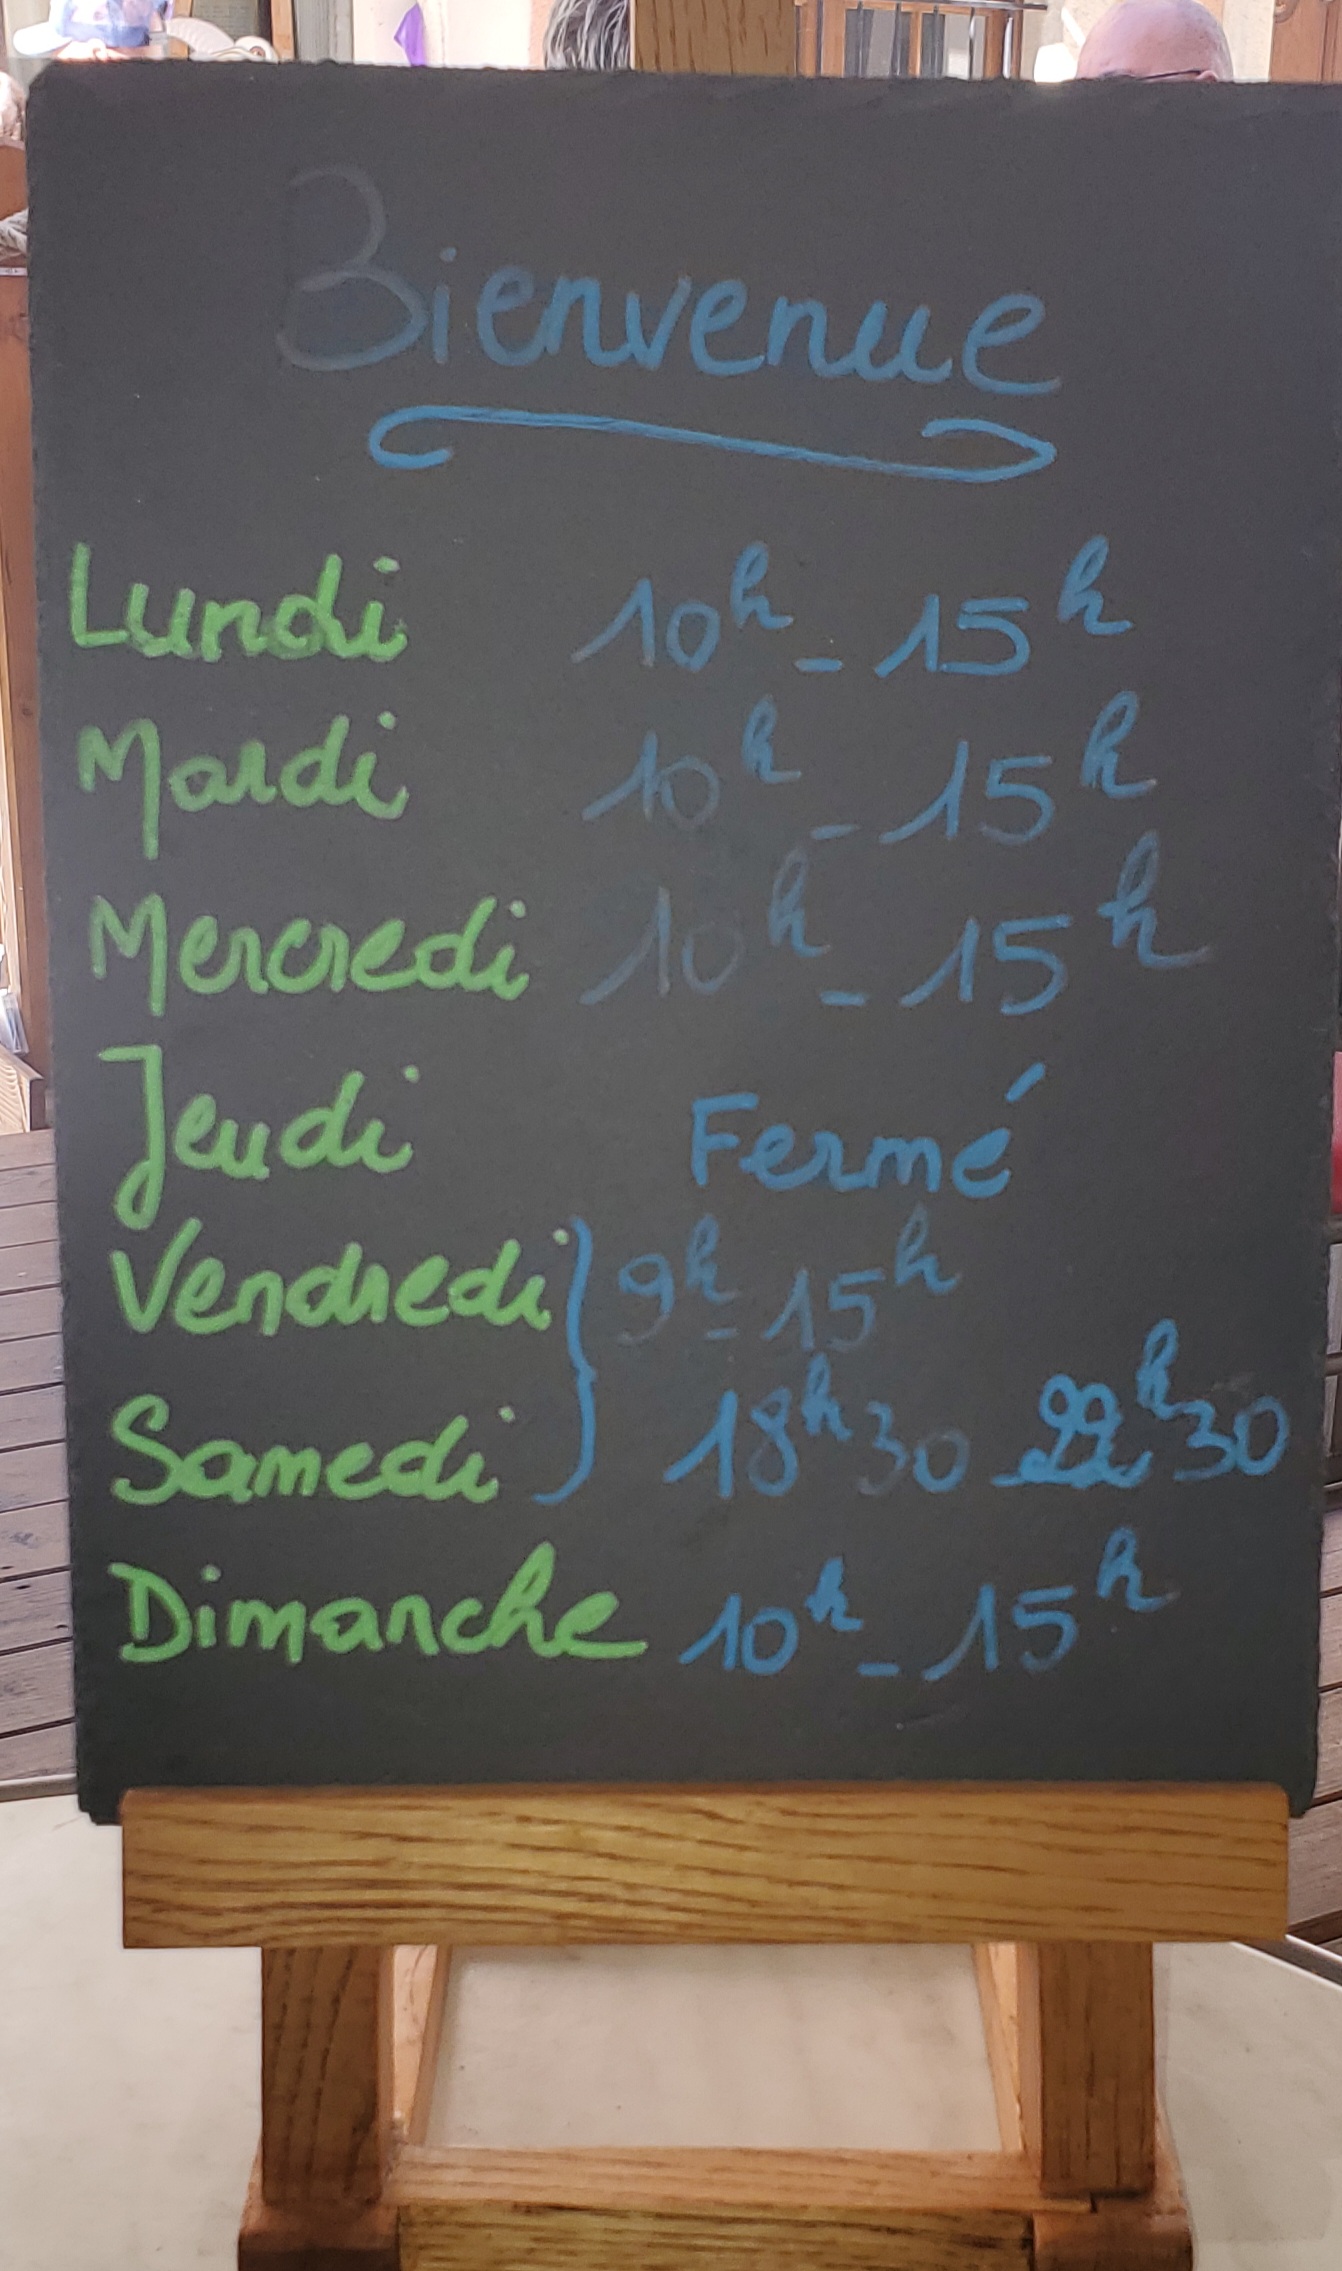 Bienvenue
Lundi 10h - 15h
Mardi 10h - 15h
Mercredi 10h - 15h
Jeudi Fermé
Vendredi } 9h - 15h
Samedi } 18h30 - 22h30
Dimanche 10h - 15h